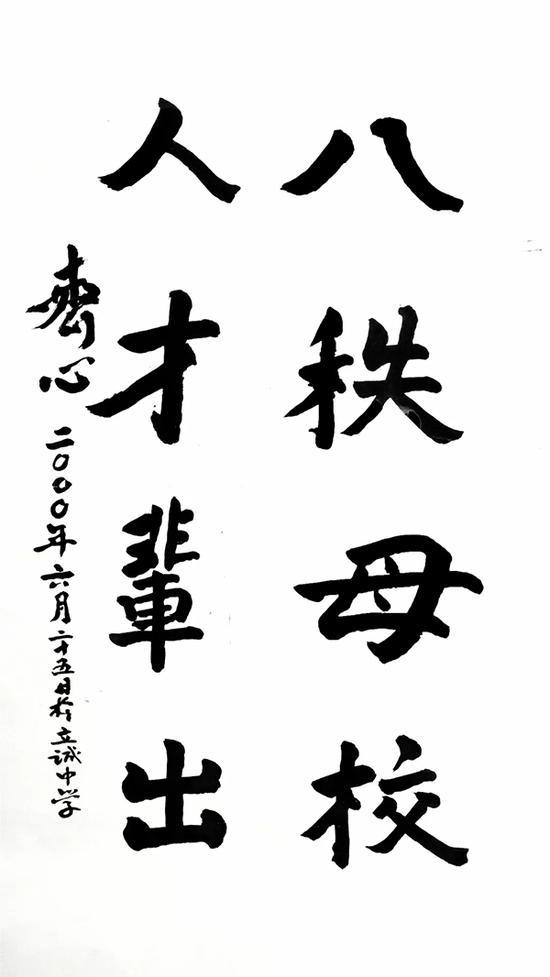 八秩母校
人才輩出
齊心
二〇〇〇年六月二十五日於立诚中学